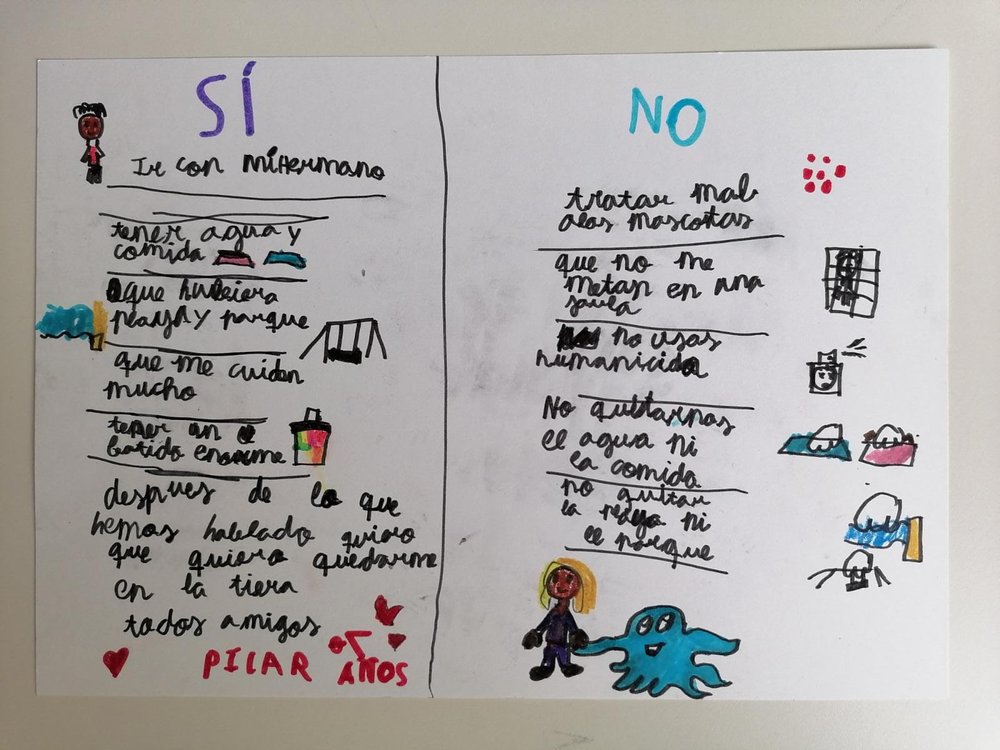 SÍ
Ir con miHermano
tener agua y
comida
que hubiera
playa y parque
que me cuiden
mucho
tener un
batido enorme
despues de lo que
hemos hablado quiero
que quiero quedarme
en la tiera
todos amigos
PILAR 7
AÑOS
NO
tratar mal
alas mascotas
que no me
metan en una
jaula
no usas
humanicida
No quitarnos
el agua ni
la comida
no quitar
la playa ni
el parque